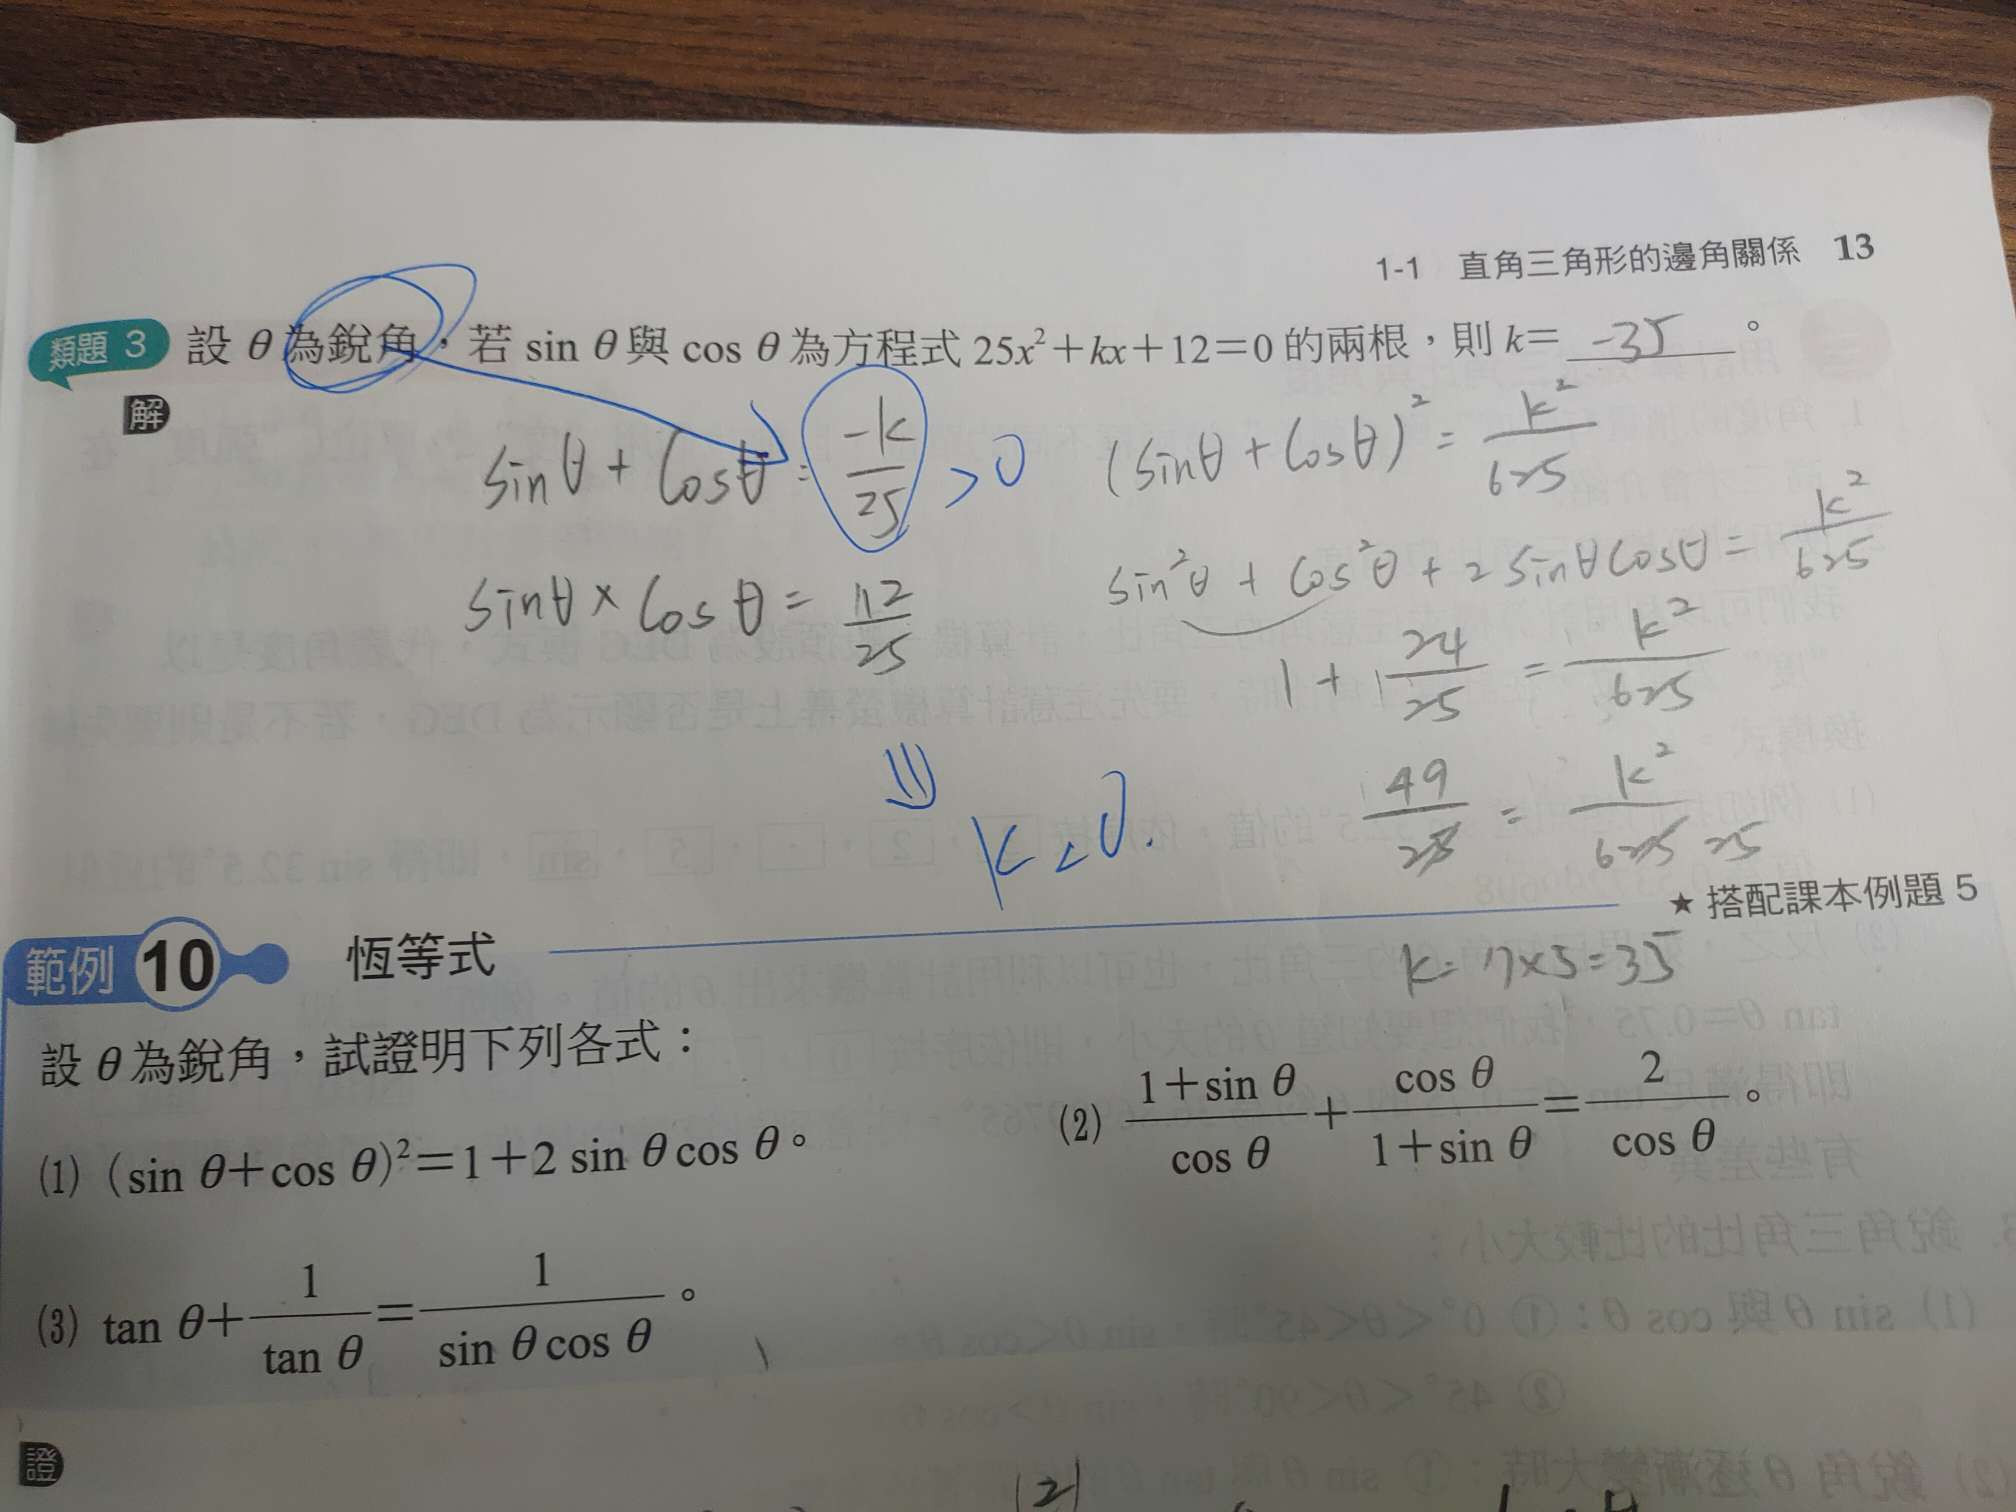 1-1 直角三角形的邊角關係 13
類題 3 設 θ 為銳角，若 sin θ 與 cos θ 為方程式 25x²+kx+12=0 的兩根，則 k= -35 。
解
sinθ + cosθ = -k/25 > 0
sinθ × cosθ = 12/25
k < 0.
(sinθ + cosθ)² = k²/625
sin²θ + cos²θ + 2 sinθ cosθ = k²/625
1 + 24/25 = k²/625
49/25 = k²/625 25
k = 7×5 = 35
範例 10 恆等式
★ 搭配課本例題 5
設 θ 為銳角，試證明下列各式：
(1) (sin θ+cos θ)²=1+2 sin θ cos θ。
(2) (1+sin θ)/(cos θ) + (cos θ)/(1+sin θ) = 2/(cos θ)。
(3) tan θ + 1/(tan θ) = 1/(sin θ cos θ)。
證
(2)